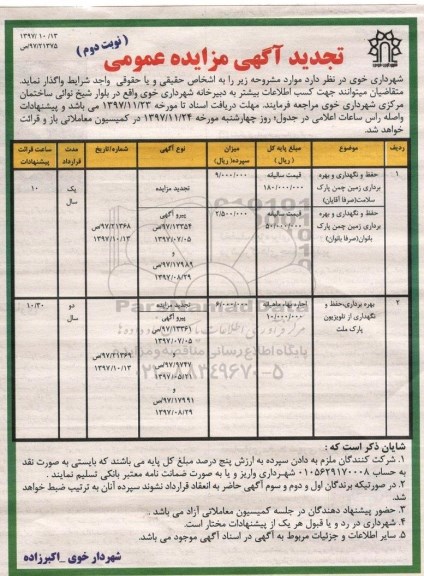 ۱۳۹۷/۱۰/۱۳
۹۷/۲۱۳۷۵/ص
(نوبت دوم)
تجدید آگهی مزایده عمومی
شهرداری خوی در نظر دارد موارد مشروحه زیر را به اشخاص حقیقی و یا حقوقی واجد شرایط واگذار نماید.
متقاضیان میتوانند جهت کسب اطلاعات بیشتر به دبیرخانه شهرداری خوی واقع در بلوار شیخ نوائی ساختمان
مرکزی شهرداری خوی مراجعه فرمایند، مهلت دریافت اسناد تا مورخه ۱۳۹۷/۱۱/۲۳ می باشد و پیشنهادات
واصله راس ساعات اعلامی در جدول؛ روز چهارشنبه مورخه ۱۳۹۷/۱۱/۲۴ در کمیسیون معاملاتی باز و قرائت
خواهد شد.
ردیف موضوع مبلغ پایه کل (ریال) میزان سپرده(ریال) نوع آگهی شماره/تاریخ مدت قرارداد ساعت قرائت پیشنهادات
۱
حفظ و نگهداری و بهره
برداری زمین چمن پارک
سلامت(صرفا آقایان)
قیمت سالیانه
۱۸۰/۰۰۰/۰۰۰
۹/۰۰۰/۰۰۰
حفظ و نگهداری و بهره
برداری زمین چمن پارک
بانوان(صرفا بانوان)
قیمت سالیانه
۵۰/۰۰۰/۰۰۰
۲/۵۰۰/۰۰۰
تجدید مزایده
پیرو آگهی
۹۷/۱۳۳۵۴/ص
۱۳۹۷/۰۷/۰۵
و
۹۷/۱۷۹۸۹/ص
۱۳۹۷/۰۸/۲۹
۹۷/۲۱۳۶۸/ص
۱۳۹۷/۱۰/۱۳
یک
سال
۱۰
۲
بهره برداری،حفظ و
نگهداری از تلویزیون
پارک ملت
اجاره بهاء ماهیانه
۱۰/۰۰۰/۰۰۰
۶/۰۰۰/۰۰۰
تجدید مزایده
پیرو آگهی
۹۷/۱۳۳۶۱/ص
۱۳۹۷/۰۷/۰۵
و
۹۷/۹۷۴۷/ص
۱۳۹۷/۰۵/۲۱
و
۹۷/۱۷۹۹۱/ص
۱۳۹۷/۰۸/۲۹
۹۷/۲۱۳۶۹/ص
۱۳۹۷/۱۰/۱۳
دو
سال
۱۰/۳۰
پایگاه اطلاع رسانی مناقصه و مزایده
شایان ذکر است که :
۱. شرکت کنندگان ملزم به دادن سپرده به ارزش پنج درصد مبلغ کل پایه می باشند که بایستی به صورت نقد
به حساب ۰۱۰۵۶۲۹۱۷۰۰۰۸ شهرداری واریز و یا به صورت ضمانت نامه معتبر بانکی تسلیم نمایند .
۲. در صورتیکه برندگان اول و دوم و سوم آگهی حاضر به انعقاد قرارداد نشوند سپرده آنان به ترتیب ضبط خواهد
شد.
۳. حضور پیشنهاد دهندگان در جلسه کمیسیون معاملاتی آزاد می باشد ..
۴. شهرداری در رد و یا قبول هر یک از پیشنهادات مختار است.
۵. سایر اطلاعات و جزئیات مربوط به آگهی در اسناد آگهی موجود می باشد.
شهردار خوی _اکبرزاده